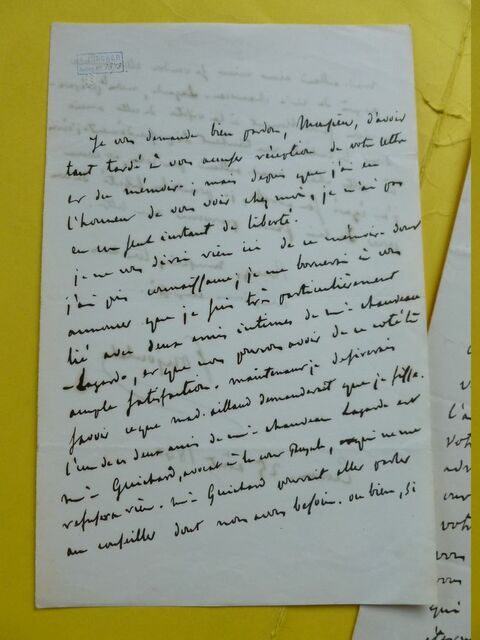 Je vous demande bien pardon, Monsieur, d'avoir
tant tardé à vous accuser réception de votre lettre
et du mémoire; mais depuis que j'ai eu
l'honneur de vous voir chez moi, je n'ai pas
eu un seul instant de liberté.
je ne vous dirai rien ici de ce mémoire dont
j'ai pris connaissance; je me bornerai à vous
annoncer que je suis très particulièrement
lié avec deux amis intimes de mr chauveau
-Lagarde, et que nous pouvons avoir de ce côté là
ample satisfaction. maintenant je desirerais
savoir ce que mad. aillaud demanderait que je fisse.
l'un de ces deux amis de mr chauveau Lagarde est
mr Guichard, avocat à la cour Royale, qui ne me
refusera rien. mr Guichard pourrait aller parler
au conseiller dont nous avons besoin. ou bien, si